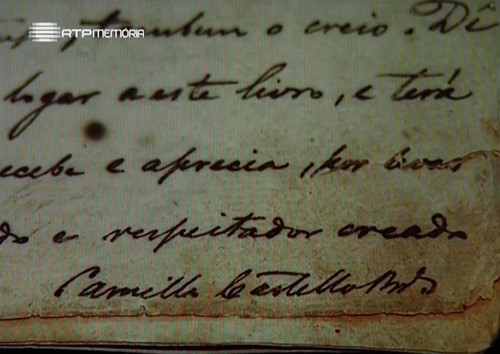 RTP MEMÓRIA
, tambem o creio. Dê
logar a este livro, e terá
recebe e aprecia, por
do e respeitador creado
Camillo Castello Brco